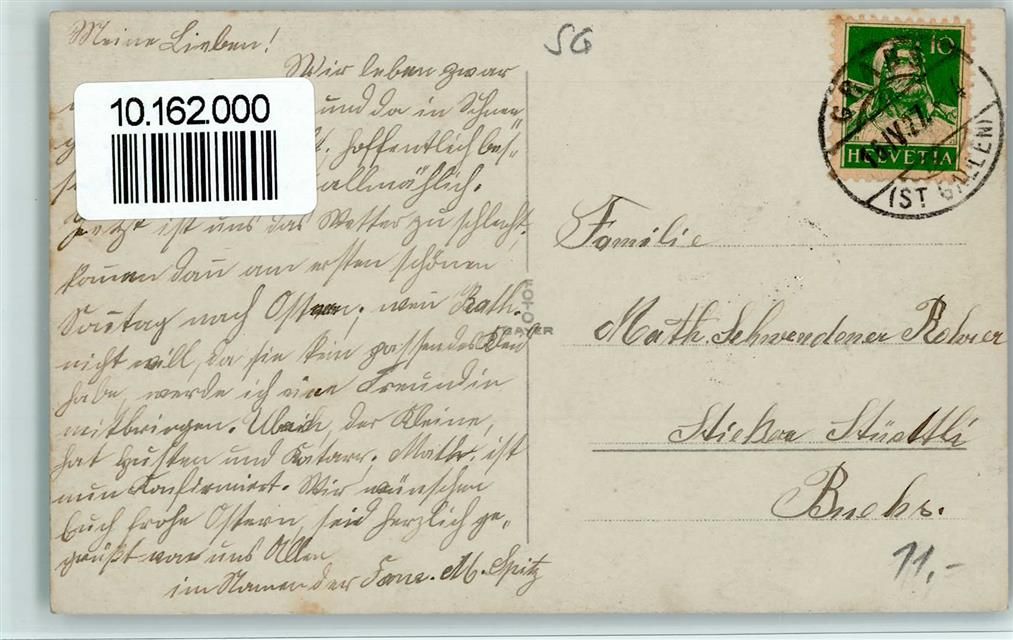 Meine Lieben!
Wir leben zwar
und da in Schnee
hoffentlich bes-
allmählich.
Jetzt ist uns das Wetter zu schlecht,
kom̄en dan̄ am ersten schönen
Sonntag nach Ostern, wen̄ Kath.
nicht will, da sie kein passendes Kleid
habe, werde ich eine Freundin
mitbringen. Ulrich, der Kleine,
hat Husten und Katarr. Math. ist
nun konfirmiert. Wir wünschen
Euch frohe Ostern, seid herzlich ge-
grüßt von uns Allen
im Namen der Fam. M. Spitz
10.162.000
SG
FOTO
BAYER
10
HELVETIA
GRABS
IV.27.
(ST GALLEN)
Familie
Math. Schwendener Rohrer
Sticker Stüdtli
Buchs.
11,-